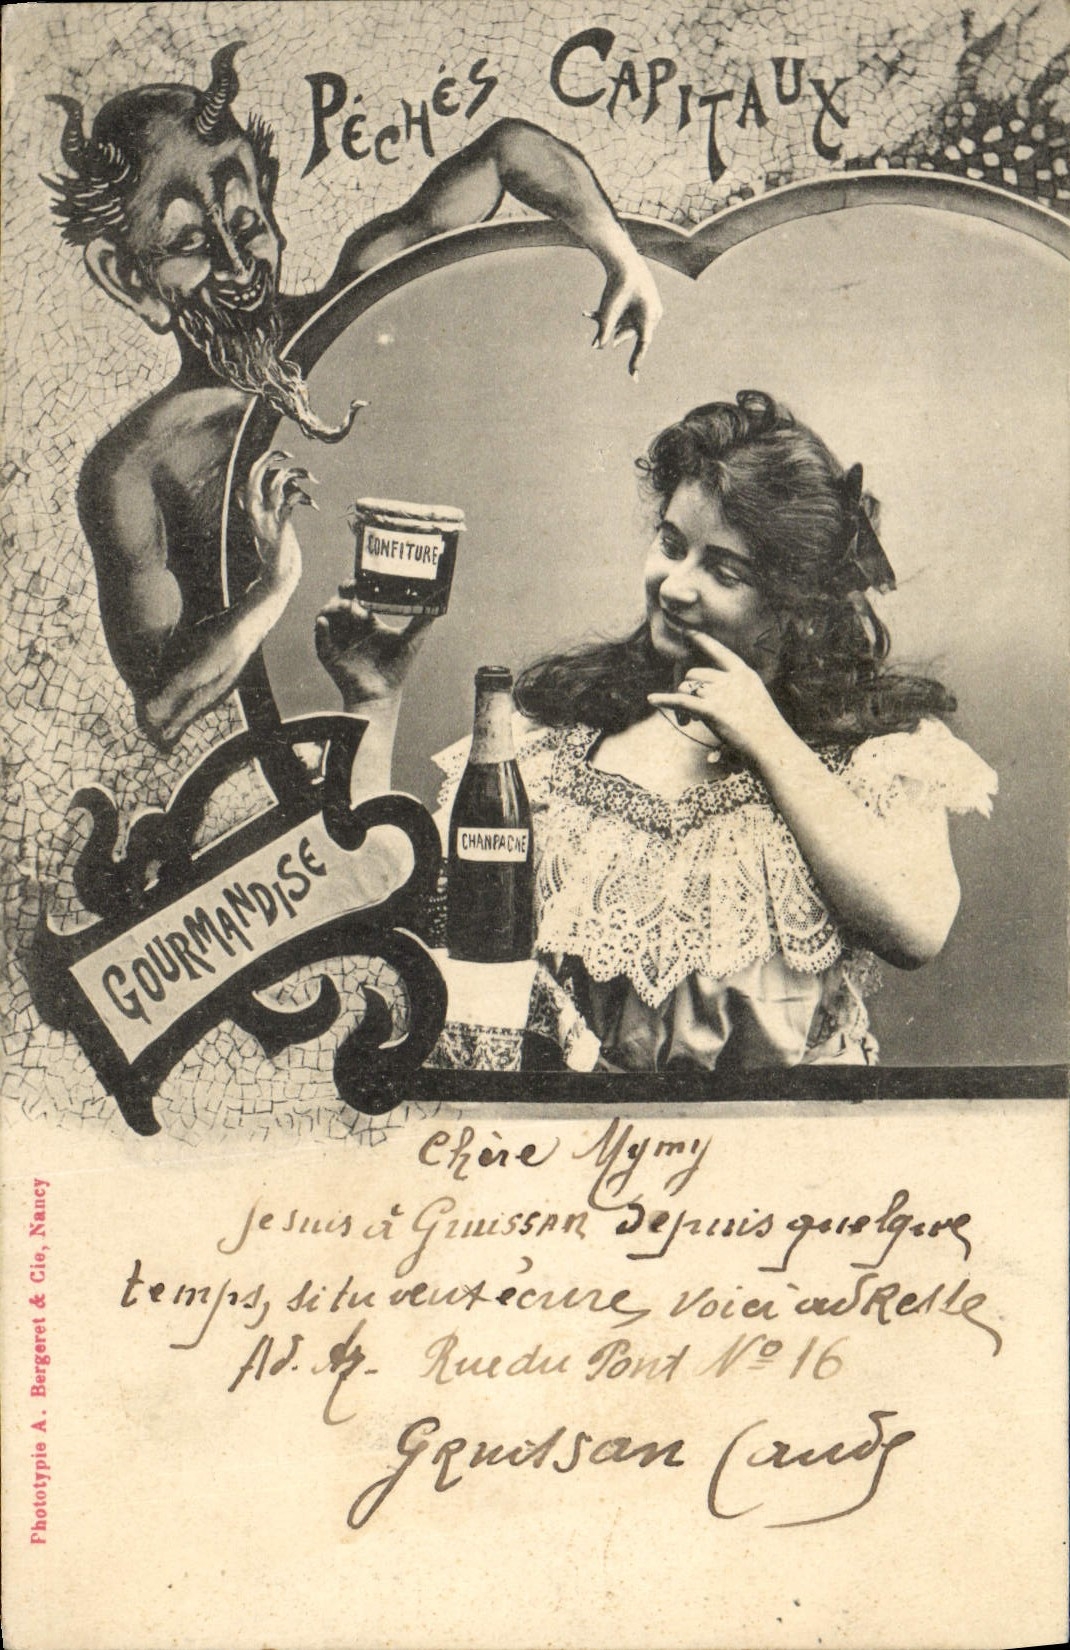 PÉCHÉS CAPITAUX
CONFITURE
CHANPAGNE
GOURMANDISE
Chère Mymy
Je suis à GruissAn depuis quelque
temps, si tu veux écrire, voici adResse
Ad. Az. Rue du Pont Nº 16
GRuissan (aude)
Phototypie A. Bergeret & Cie, Nancy